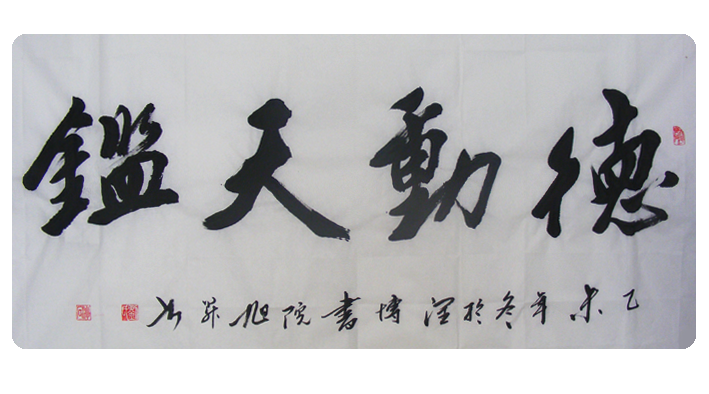 德動天鑑
乙未年冬於淄博書院旭昇书